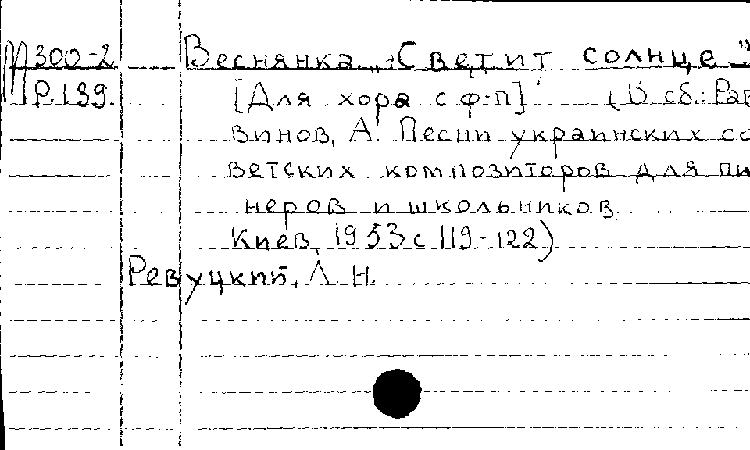 М 300-2 Веснянка „Светит солнце"
Р.139. [Для хора с ф-п] (В сб.: Рав
винов, А. Песни украинских со
ветских композиторов для пи
неров и школьников
Киев, 1953 с 119-122)
Ревуцкий, Л. Н.